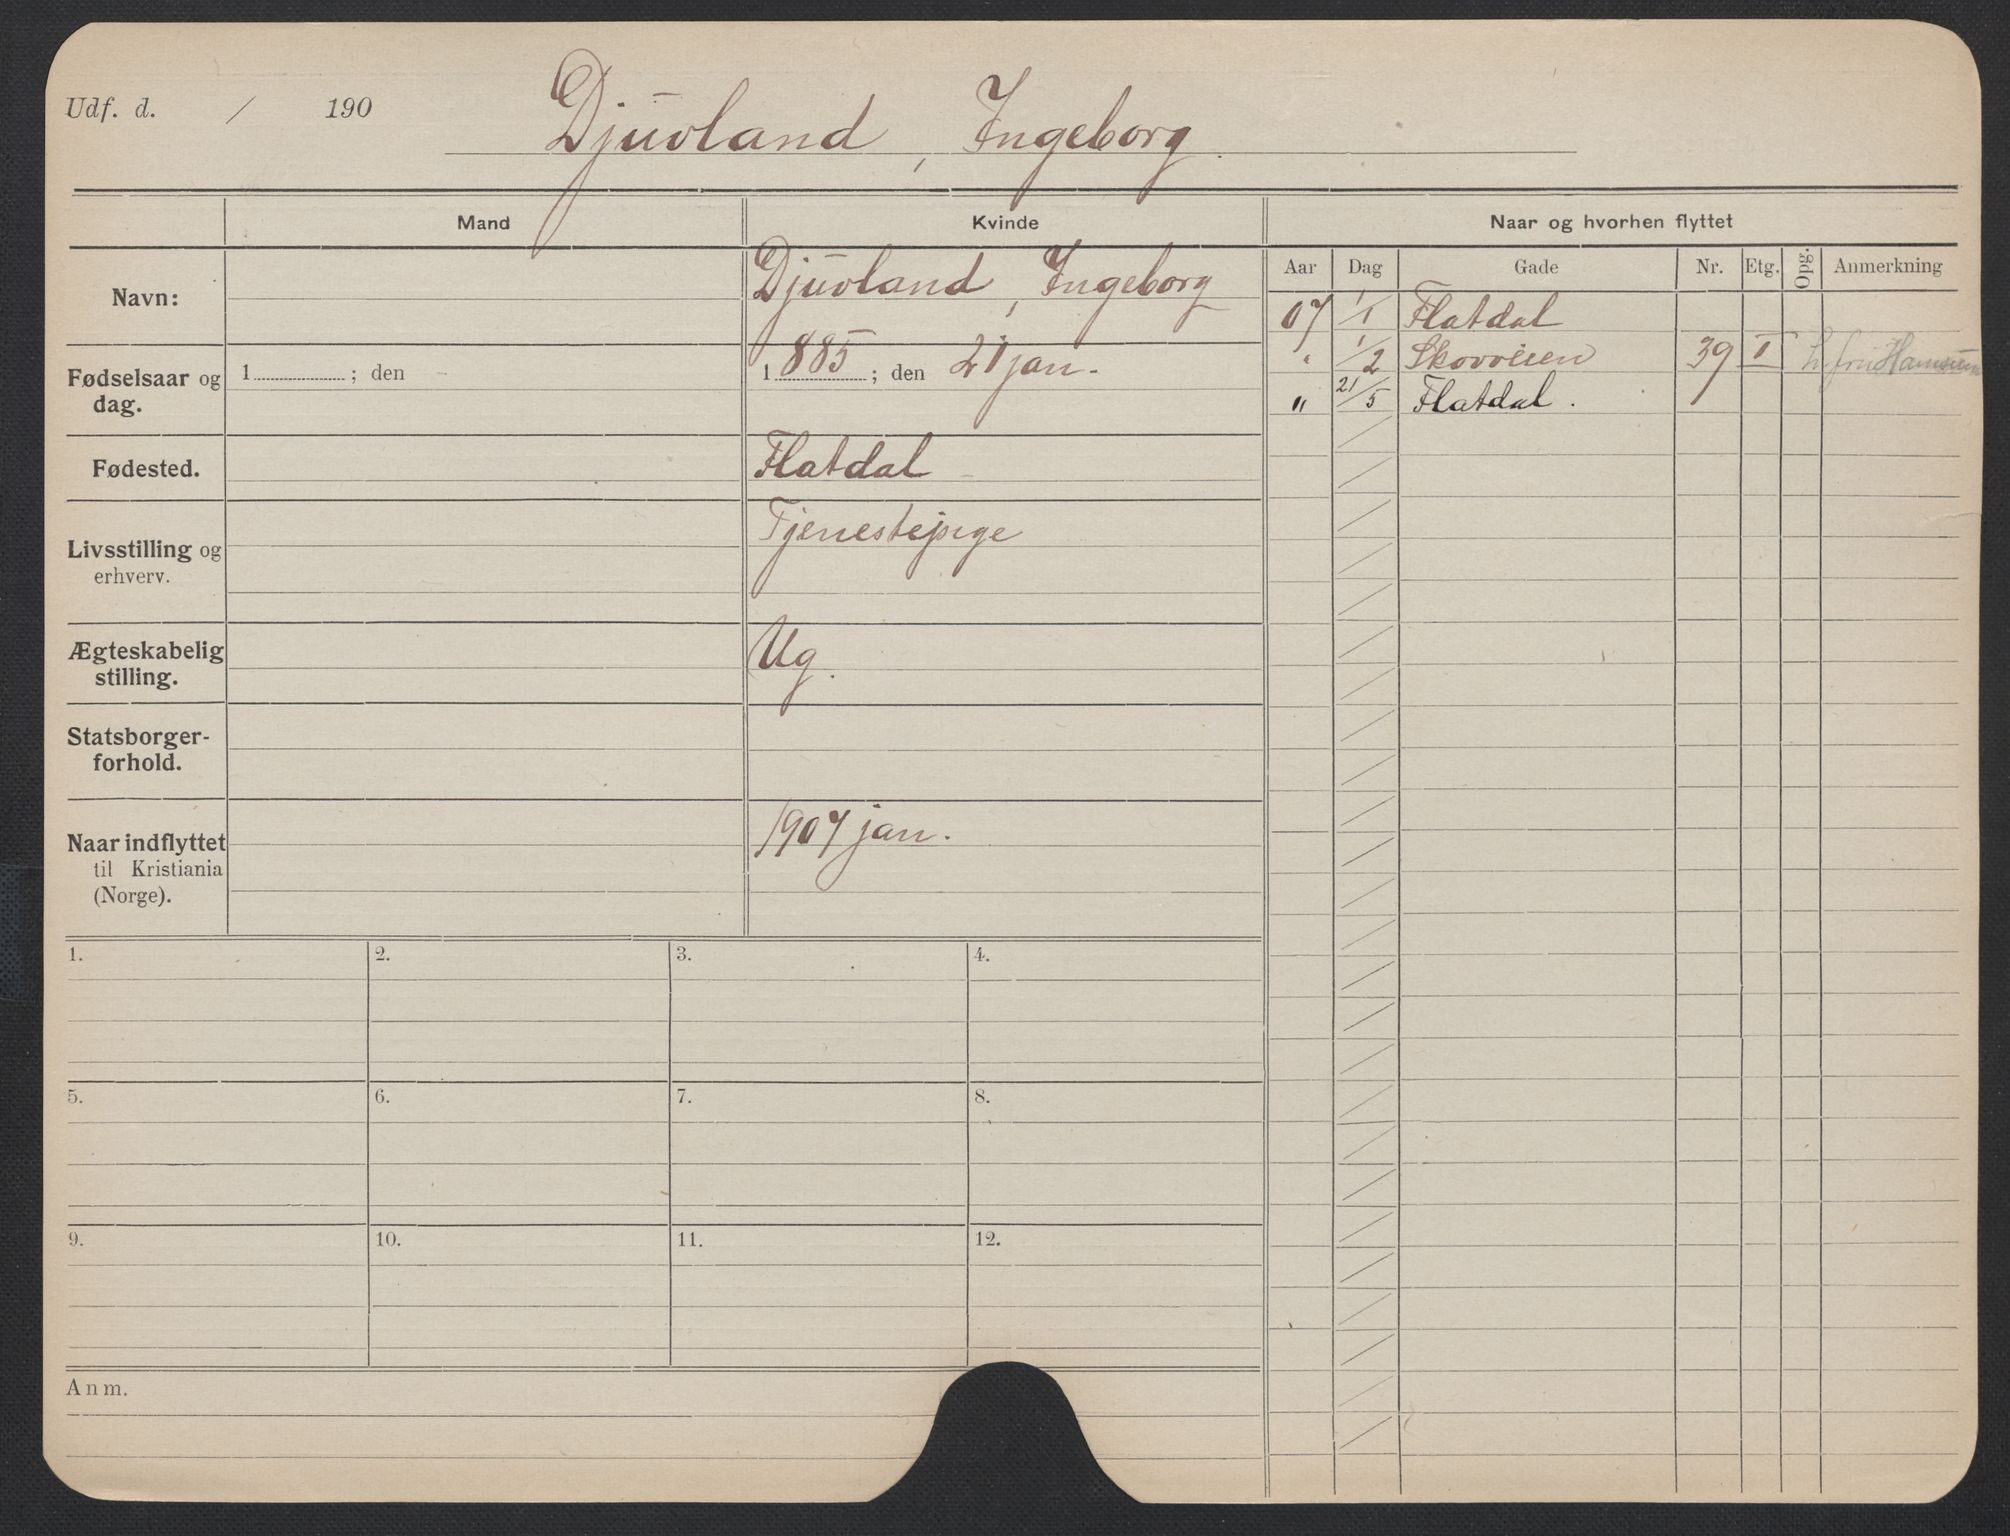 Udf. d. / 190
Djuvland, Ingeborg.
Mand Kvinde Naar og hvorhen flyttet
Aar Dag Gade Nr. Etg. Opg. Anmerkning
Navn: Djuvland, Ingeborg
07 1/1 Flatdal
" 1/2 Skovveien 39 II h. fru Hamsun
" 21/5 Flatdal.
Fødselsaar og
dag.
1 ; den
1885; den 21 jan.
Fødested. Flatdal
Livsstilling og
erhverv.
Tjenestepige
Ægteskabelig
stilling.
Ug.
Statsborger-
forhold.
Naar indflyttet
til Kristiania
(Norge).
1907 jan.
1. 2. 3. 4.
5. 6. 7. 8.
9. 10. 11. 12.
Anm.